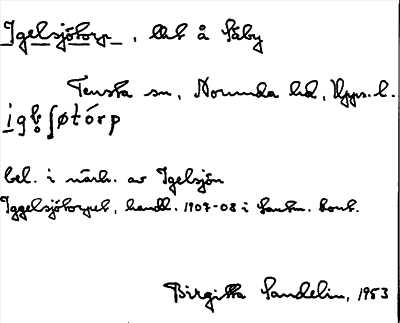 Igelsjötorp, lht å Säby
Tensta sn, Norunda hd, Upps. l.
bel. i närh. av Igelsjön
Iggelsjötorpet, handl. 1907-08 i Lantm. kont.
Birgitta Sandelin, 1953